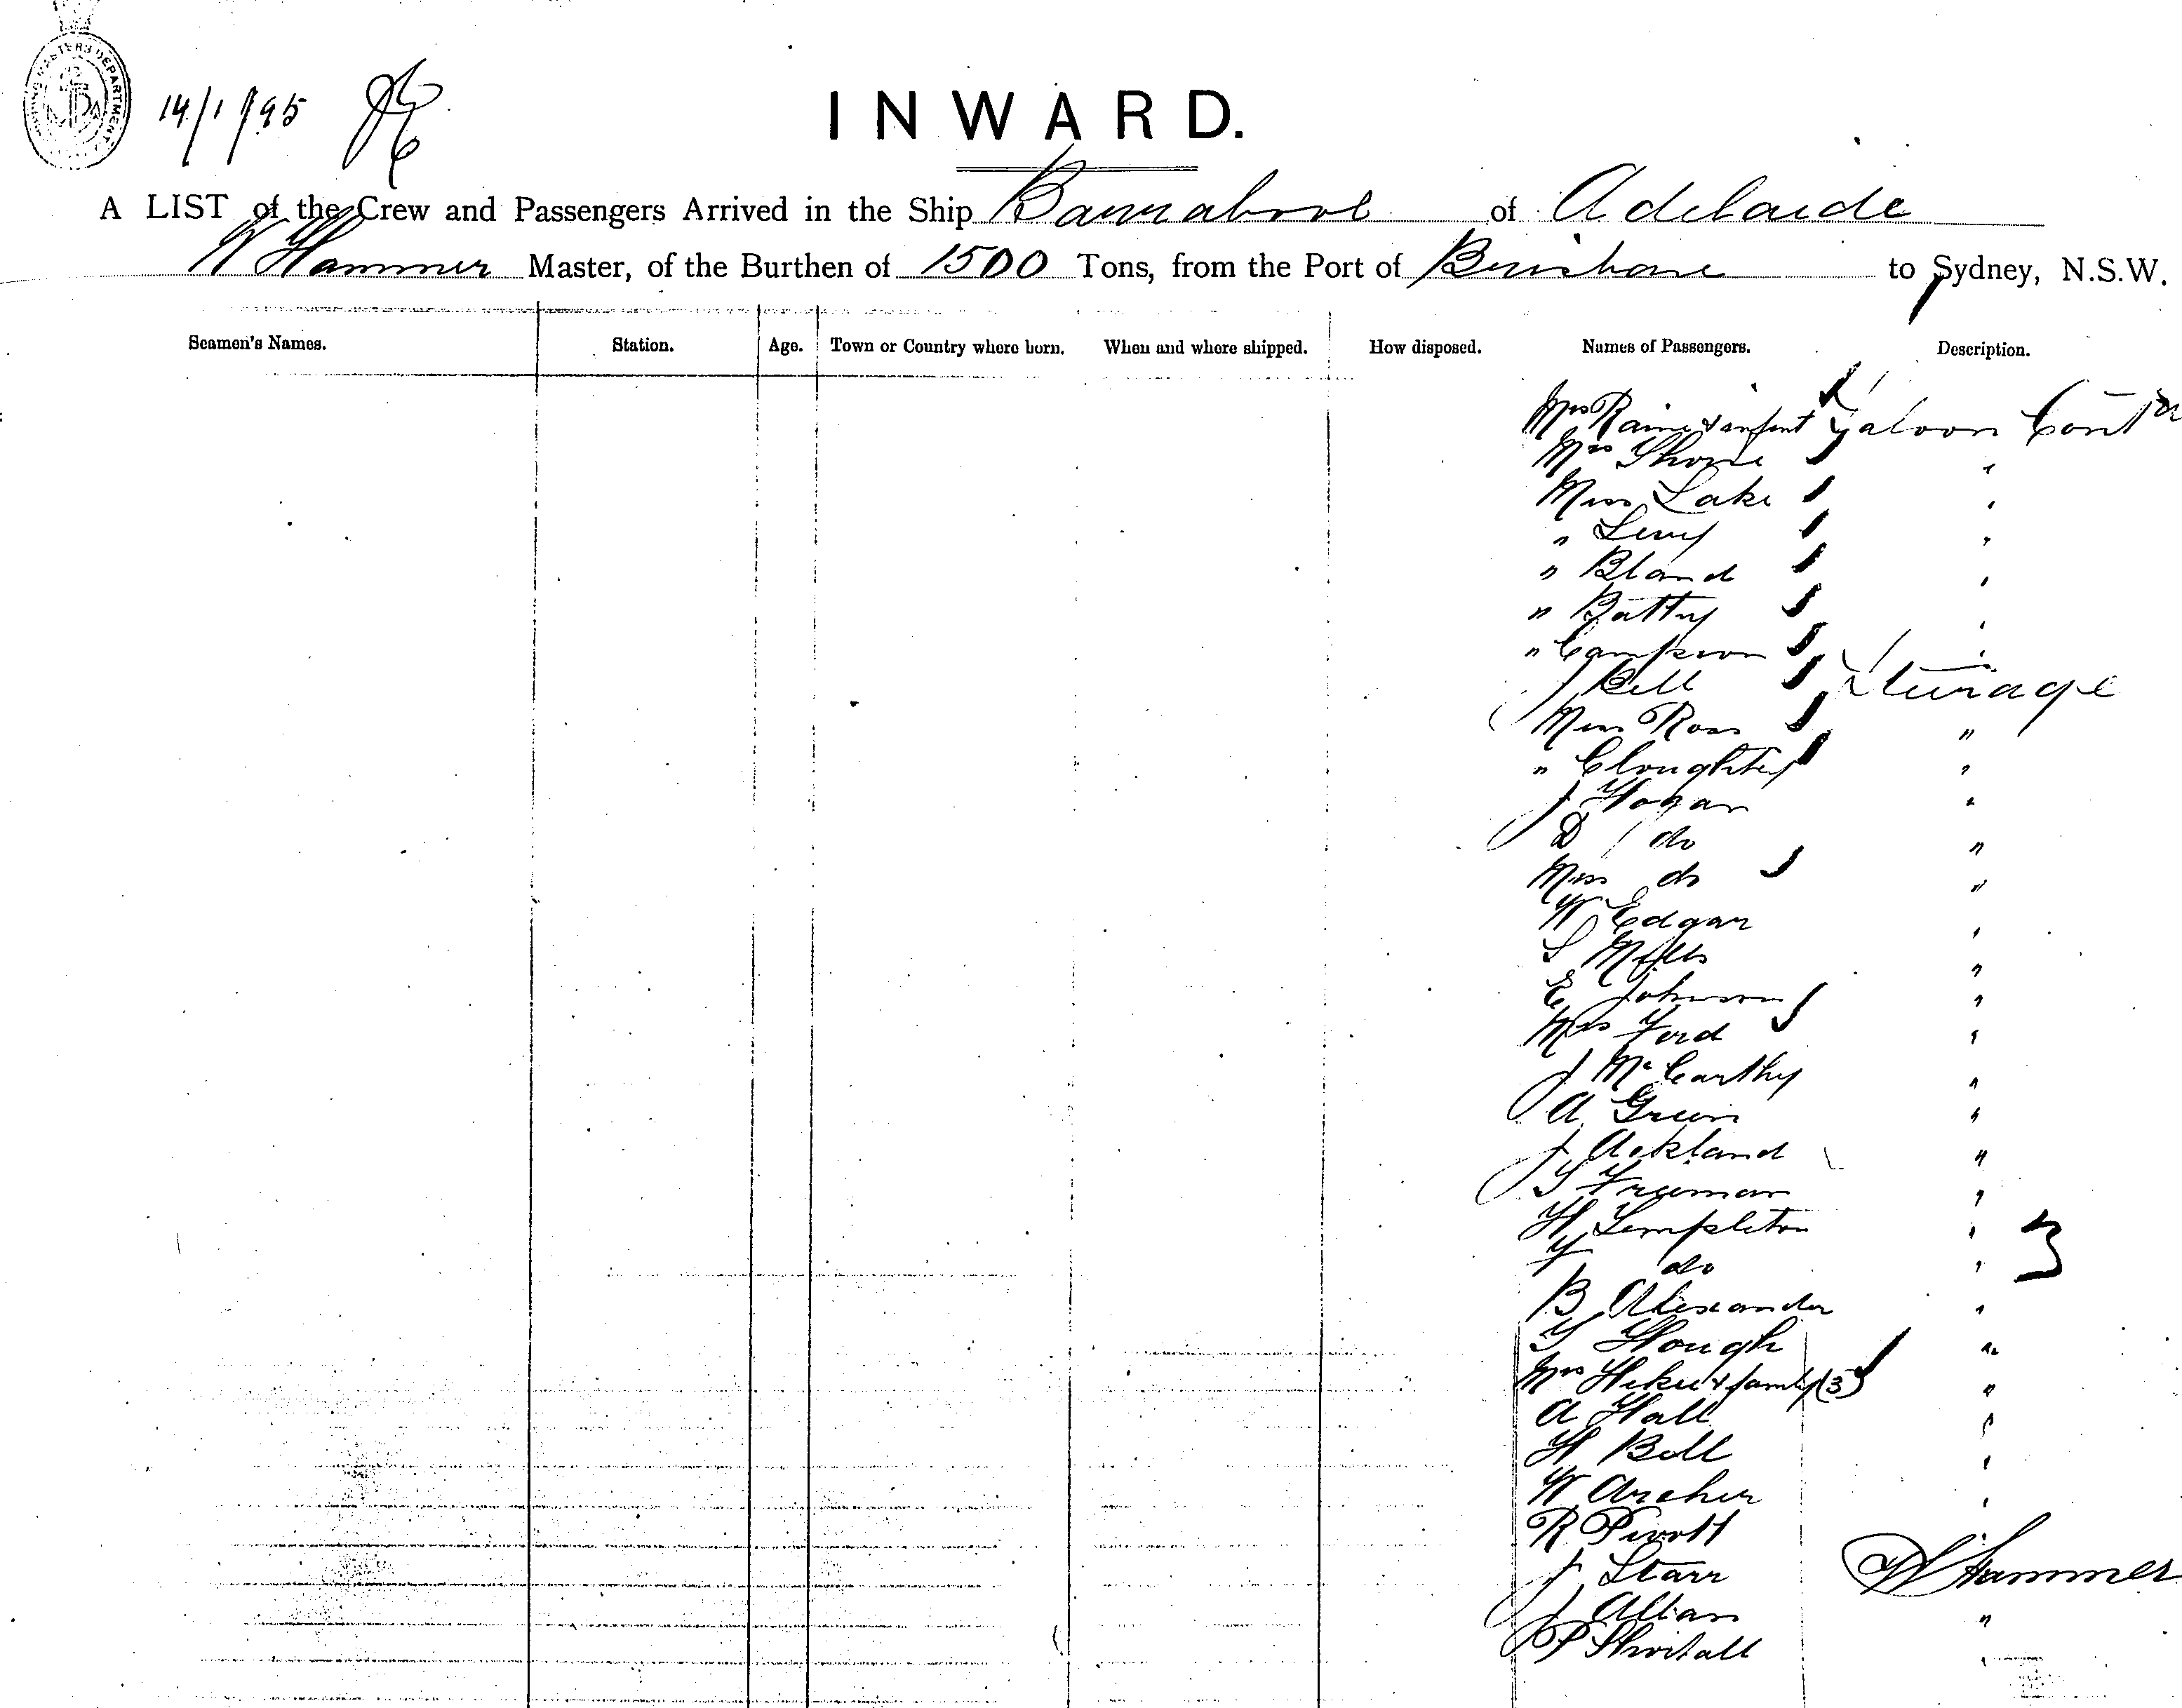 14/1/95
INWARD.
A LIST of the Crew and Passengers Arrived in the Ship Barrabool of Adelaide
W Hammer Master, of the Burthen of 1500 Tons, from the Port of Brisbane to Sydney, N.S.W.
Seamen's Names. Station. Age. Town or Country where born. When and where shipped. How disposed. Names of Passengers. Description.
Mrs Raine & infant Saloon Contd
Mrs "
Miss Lake "
" Levy "
" Bland "
" Batty "
" "
J Bell Steerage
Miss Ross "
" Cloughtey "
J Hogan "
D do "
Miss do "
W Edgar "
S Mills "
E Johnson "
Mrs Ford "
J McCarthy "
A Green "
J Ackland "
T Freeman "
H Templeton "
F do " 3
B Alexander "
T Hough "
Mrs & family (3) "
A Hall "
H Bell "
W Archer "
R
J Starr W Hammer
J Allan "
P Shortall "